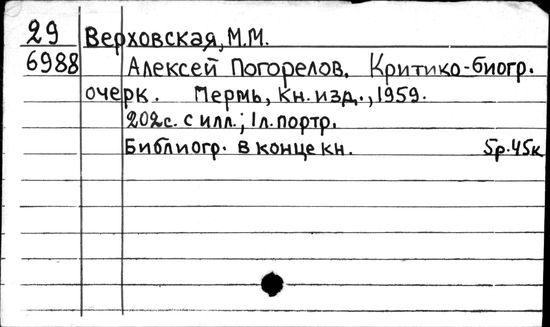 29 Верховская, М.М.
6988 Алексей Погорелов. Критико-биогр.
очерк. Пермь, кн. изд., 1959.
202с. с илл.; 1л. портр.
Библиогр. в конце кн. 5р.45к